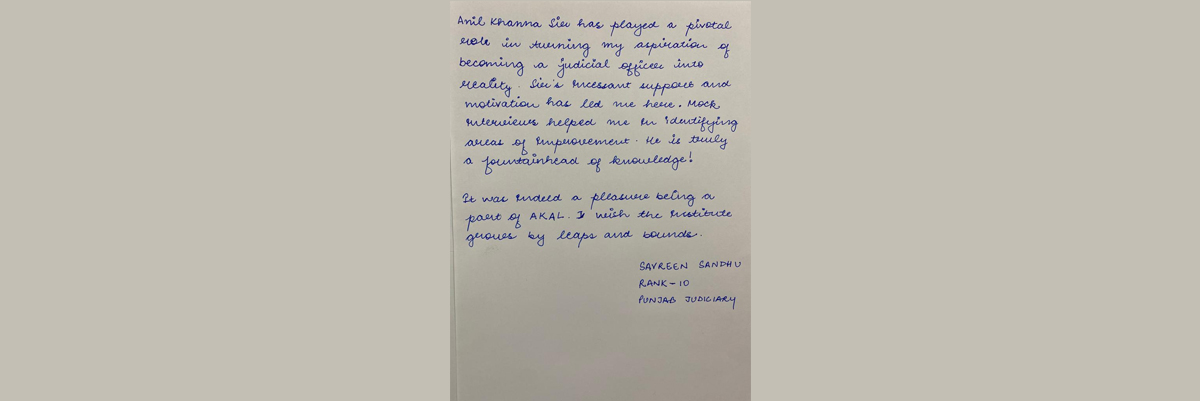 Anil Khanna Sir has played a pivotal
role in turning my aspiration of
becoming a judicial officer into
reality. Sir's incessant support and
motivation has led me here. Mock
interviews helped me in identifying
areas of improvement. He is truly
a fountainhead of knowledge!
It was indeed a pleasure being a
part of AKAL. I wish the institute
grows by leaps and bounds.
SAVREEN SANDHU
RANK-10
PUNJAB JUDICIARY